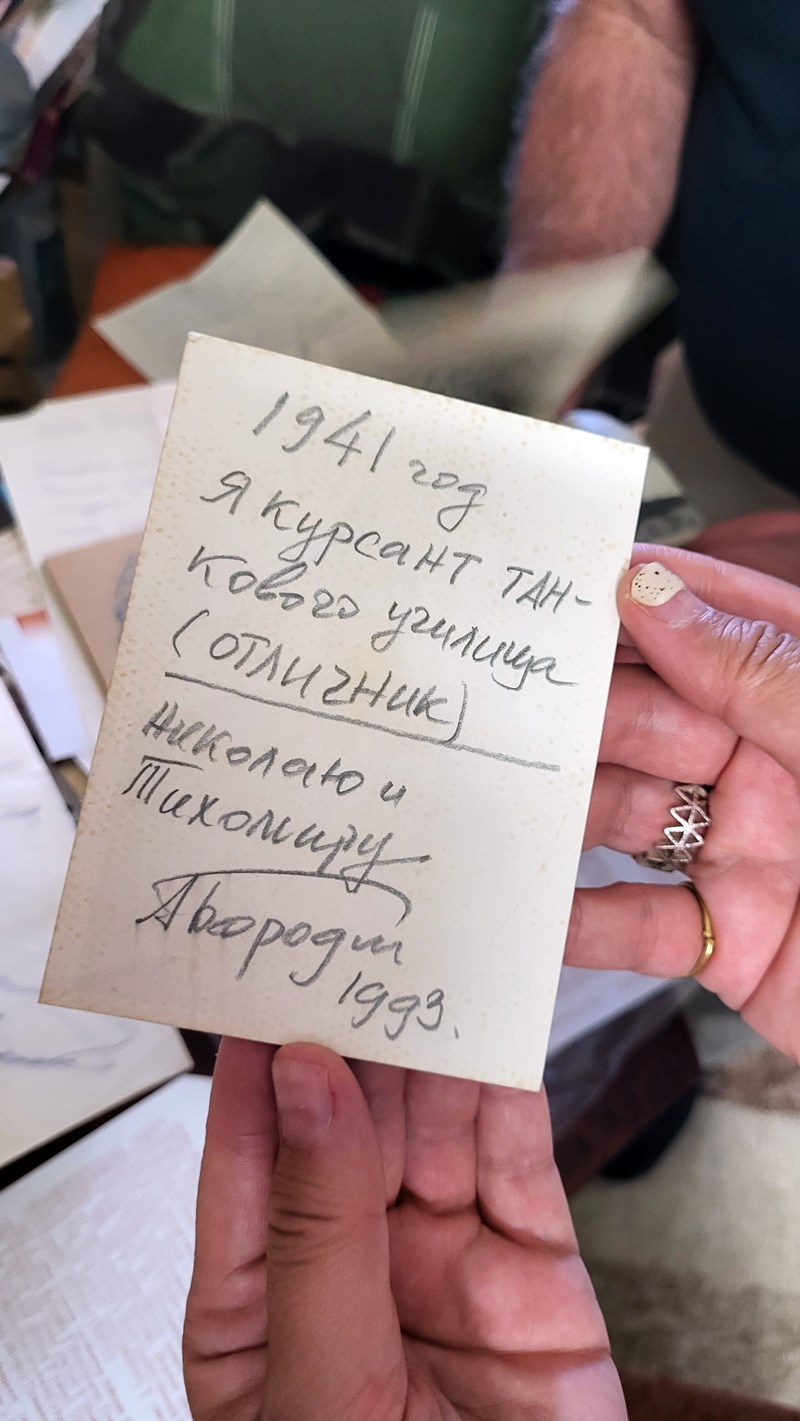 1941 год
Я курсант тан-
кового училища
(отличник)
Николаю и
Тихомиру
1993.